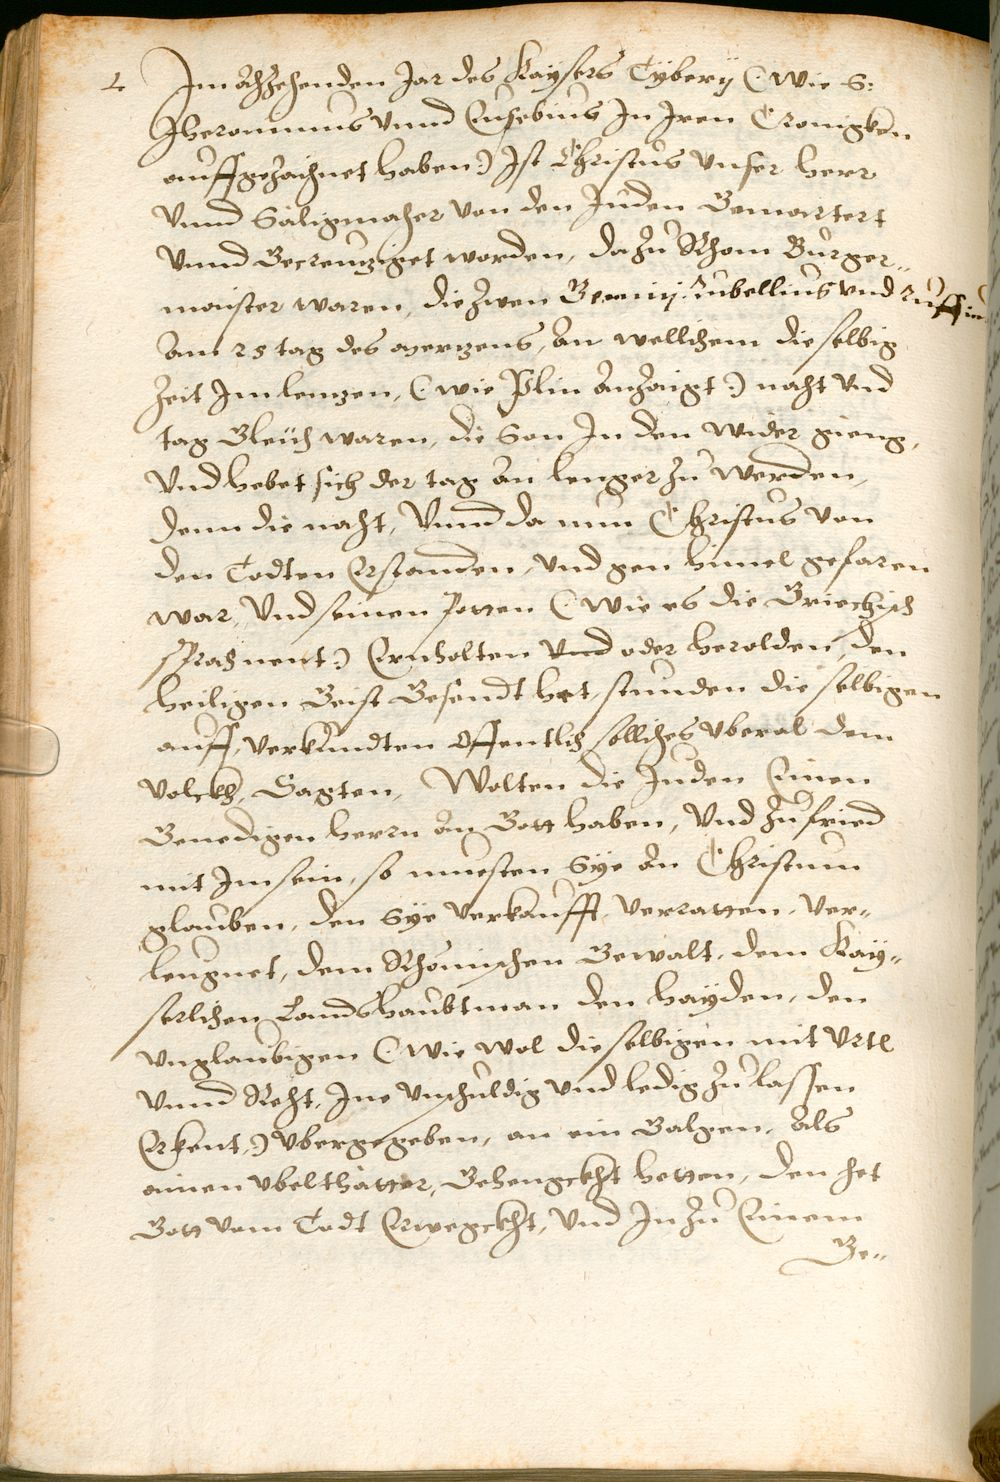 2 Im achzehenden Jar des Kaysers Tyberij (: wie S:
Jheronimus vnnd Eusebius In Iren Cronigken
auffgezaichnet haben :) Ist Christus vnser herr
vnnd Säligmacher von den Juden Gemartert
vnnd Gecreuziget worden, da zu Rhom Burger„
maister waren, die zwen Gemini. Rubellius vnd Ruffius
Am 25 tag des merzens, An wellichem die selbig
Zeit Im lenzen, (: wie Plin Anzaigt :) nacht vnd
tag Gleich waren, die Son In den wider gieng,
vnd hebet sich der tag An lenger zu werden,
denn die nacht, vnnd da nun Christus von
den Todten Erstanden, vnd gen himel gefaren
war, vnd seinen Potten (: wie es die Griechisch
sprach nent :) Ernholten vnd oder herolden, den
heiligen Geist Gesendt het, stunden die selbigen
auff, verkündten öffentlich solliches vberal dem
volckh, Sagten, Wolten die Juden Einen
Genedigen herrn an Gott haben, vnd zu fried
mit Im sein, so muesten Sye An Christum
glauben, den Sye verkaufft, verratten, ver„
leugnet, dem Rhömischen Gewalt, dem Kay„
serlichen Landshaubtman den hayden, den
vnglaubigen (: wie wol die selbigen mit vrtl
vnnd Recht, Ine vnschuldig vnd ledig zu lassen
Erkent, :) vbergegeben, an ein Galgen, Als
ainen vbelthätter, Gehengckht hetten, den het
Gott vom Todt Erwegckht, vnd In zu Einem
Ge„